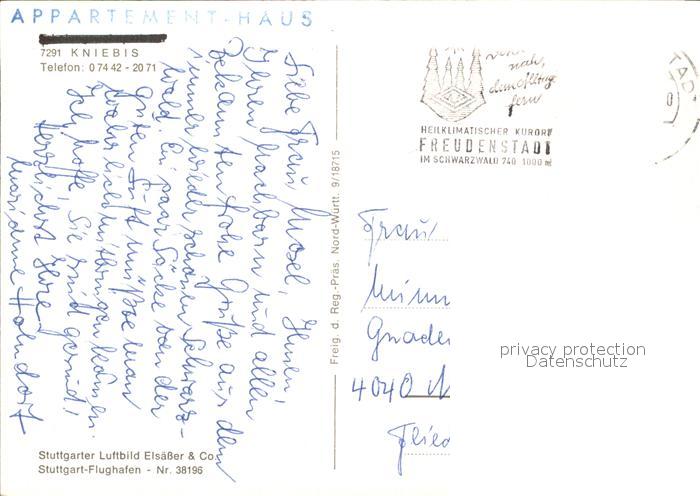 APPARTEMENT-HAUS
7291 KNIEBIS
Telefon: 0 74 42 - 20 71
Liebe Frau Mosel, Ihnen,
Ihren Nachbarn und allen
Bekannten frohe Grüße aus dem
immer wieder schönen Schwarz-
wald. Ein paar Säcke von der
guten Luft müßte man
sich mitbringen können.
Ich hoffe, Sie sind gesund!
Herzlichst Ihre
Marianne
Stuttgarter Luftbild Elsäßer & Co.
Stuttgart-Flughafen - Nr. 38196
Freig. d. Reg.-Präs. Nord-Württ. 9/18715
nach,
dem Alltag
fern
HEILKLIMATISCHER KURORT
FREUDENSTADT
IM SCHWARZWALD 740-1000 m
TADT
Frau
Gnade
4040 N
privacy protection
Datenschutz